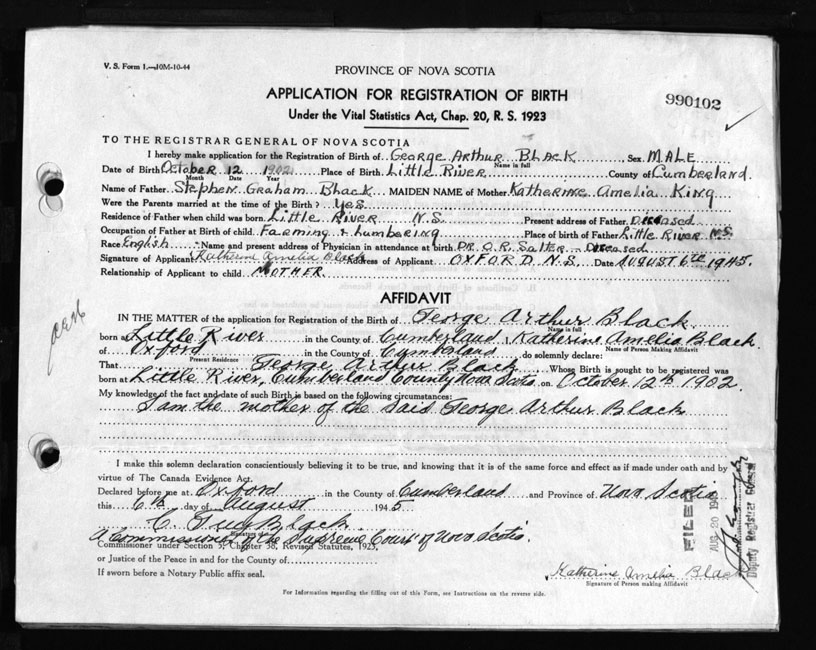 V. S. Form 1.—10M-10-44
PROVINCE OF NOVA SCOTIA
APPLICATION FOR REGISTRATION OF BIRTH
990102
Under the Vital Statistics Act, Chap. 20, R. S. 1923
TO THE REGISTRAR GENERAL OF NOVA SCOTIA
I hereby make application for the Registration of Birth of George Arthur Black Sex MALE
Name in full
Date of Birth October 12 1902 Place of Birth Little River County of Cumberland
Month Date Year
Name of Father Stephen Graham Black MAIDEN NAME of Mother Katherine Amelia King
Were the Parents married at the time of the Birth? Yes
Residence of Father when child was born Little River N.S. Present address of Father Deceased
Occupation of Father at Birth of child Farming & Lumbering Place of birth of Father Little River N.S.
Race English Name and present address of Physician in attendance at birth DR. O.R. Salter - Deceased
Signature of Applicant Katherine Amelia Black Address of Applicant OXFORD N.S. Date AUGUST 6th 1945.
Relationship of Applicant to child MOTHER
AFFIDAVIT
IN THE MATTER of the application for Registration of the Birth of George Arthur Black
Name in full
born at Little River in the County of Cumberland Katherine Amelia Black
Name of Person Making Affidavit
of Oxford in the County of Cumberland do solemnly declare:
Present Residence
That George Arthur Black Whose Birth is sought to be registered was
born at Little River, Cumberland County Nova Scotia on October 12th 1902.
My knowledge of the fact and date of such Birth is based on the following circumstances:
I am the mother of the said George Arthur Black
I make this solemn declaration conscientiously believing it to be true, and knowing that it is of the same force and effect as if made under oath and by
virtue of The Canada Evidence Act.
Declared before me at Oxford in the County of Cumberland and Province of Nova Scotia
this 6th day of August 1945
Black
A Commissioner of the Supreme Court of Nova Scotia.
Commissioner under Section 5, Chapter 38, Revised Statutes, 1923,
or Justice of the Peace in and for the County of
If sworn before a Notary Public affix seal.
Katherine Amelia Black
Signature of Person making Affidavit
For Information regarding the filling out of this Form, see Instructions on the reverse side.
FILED
AUG 20 194
Deputy Registrar General